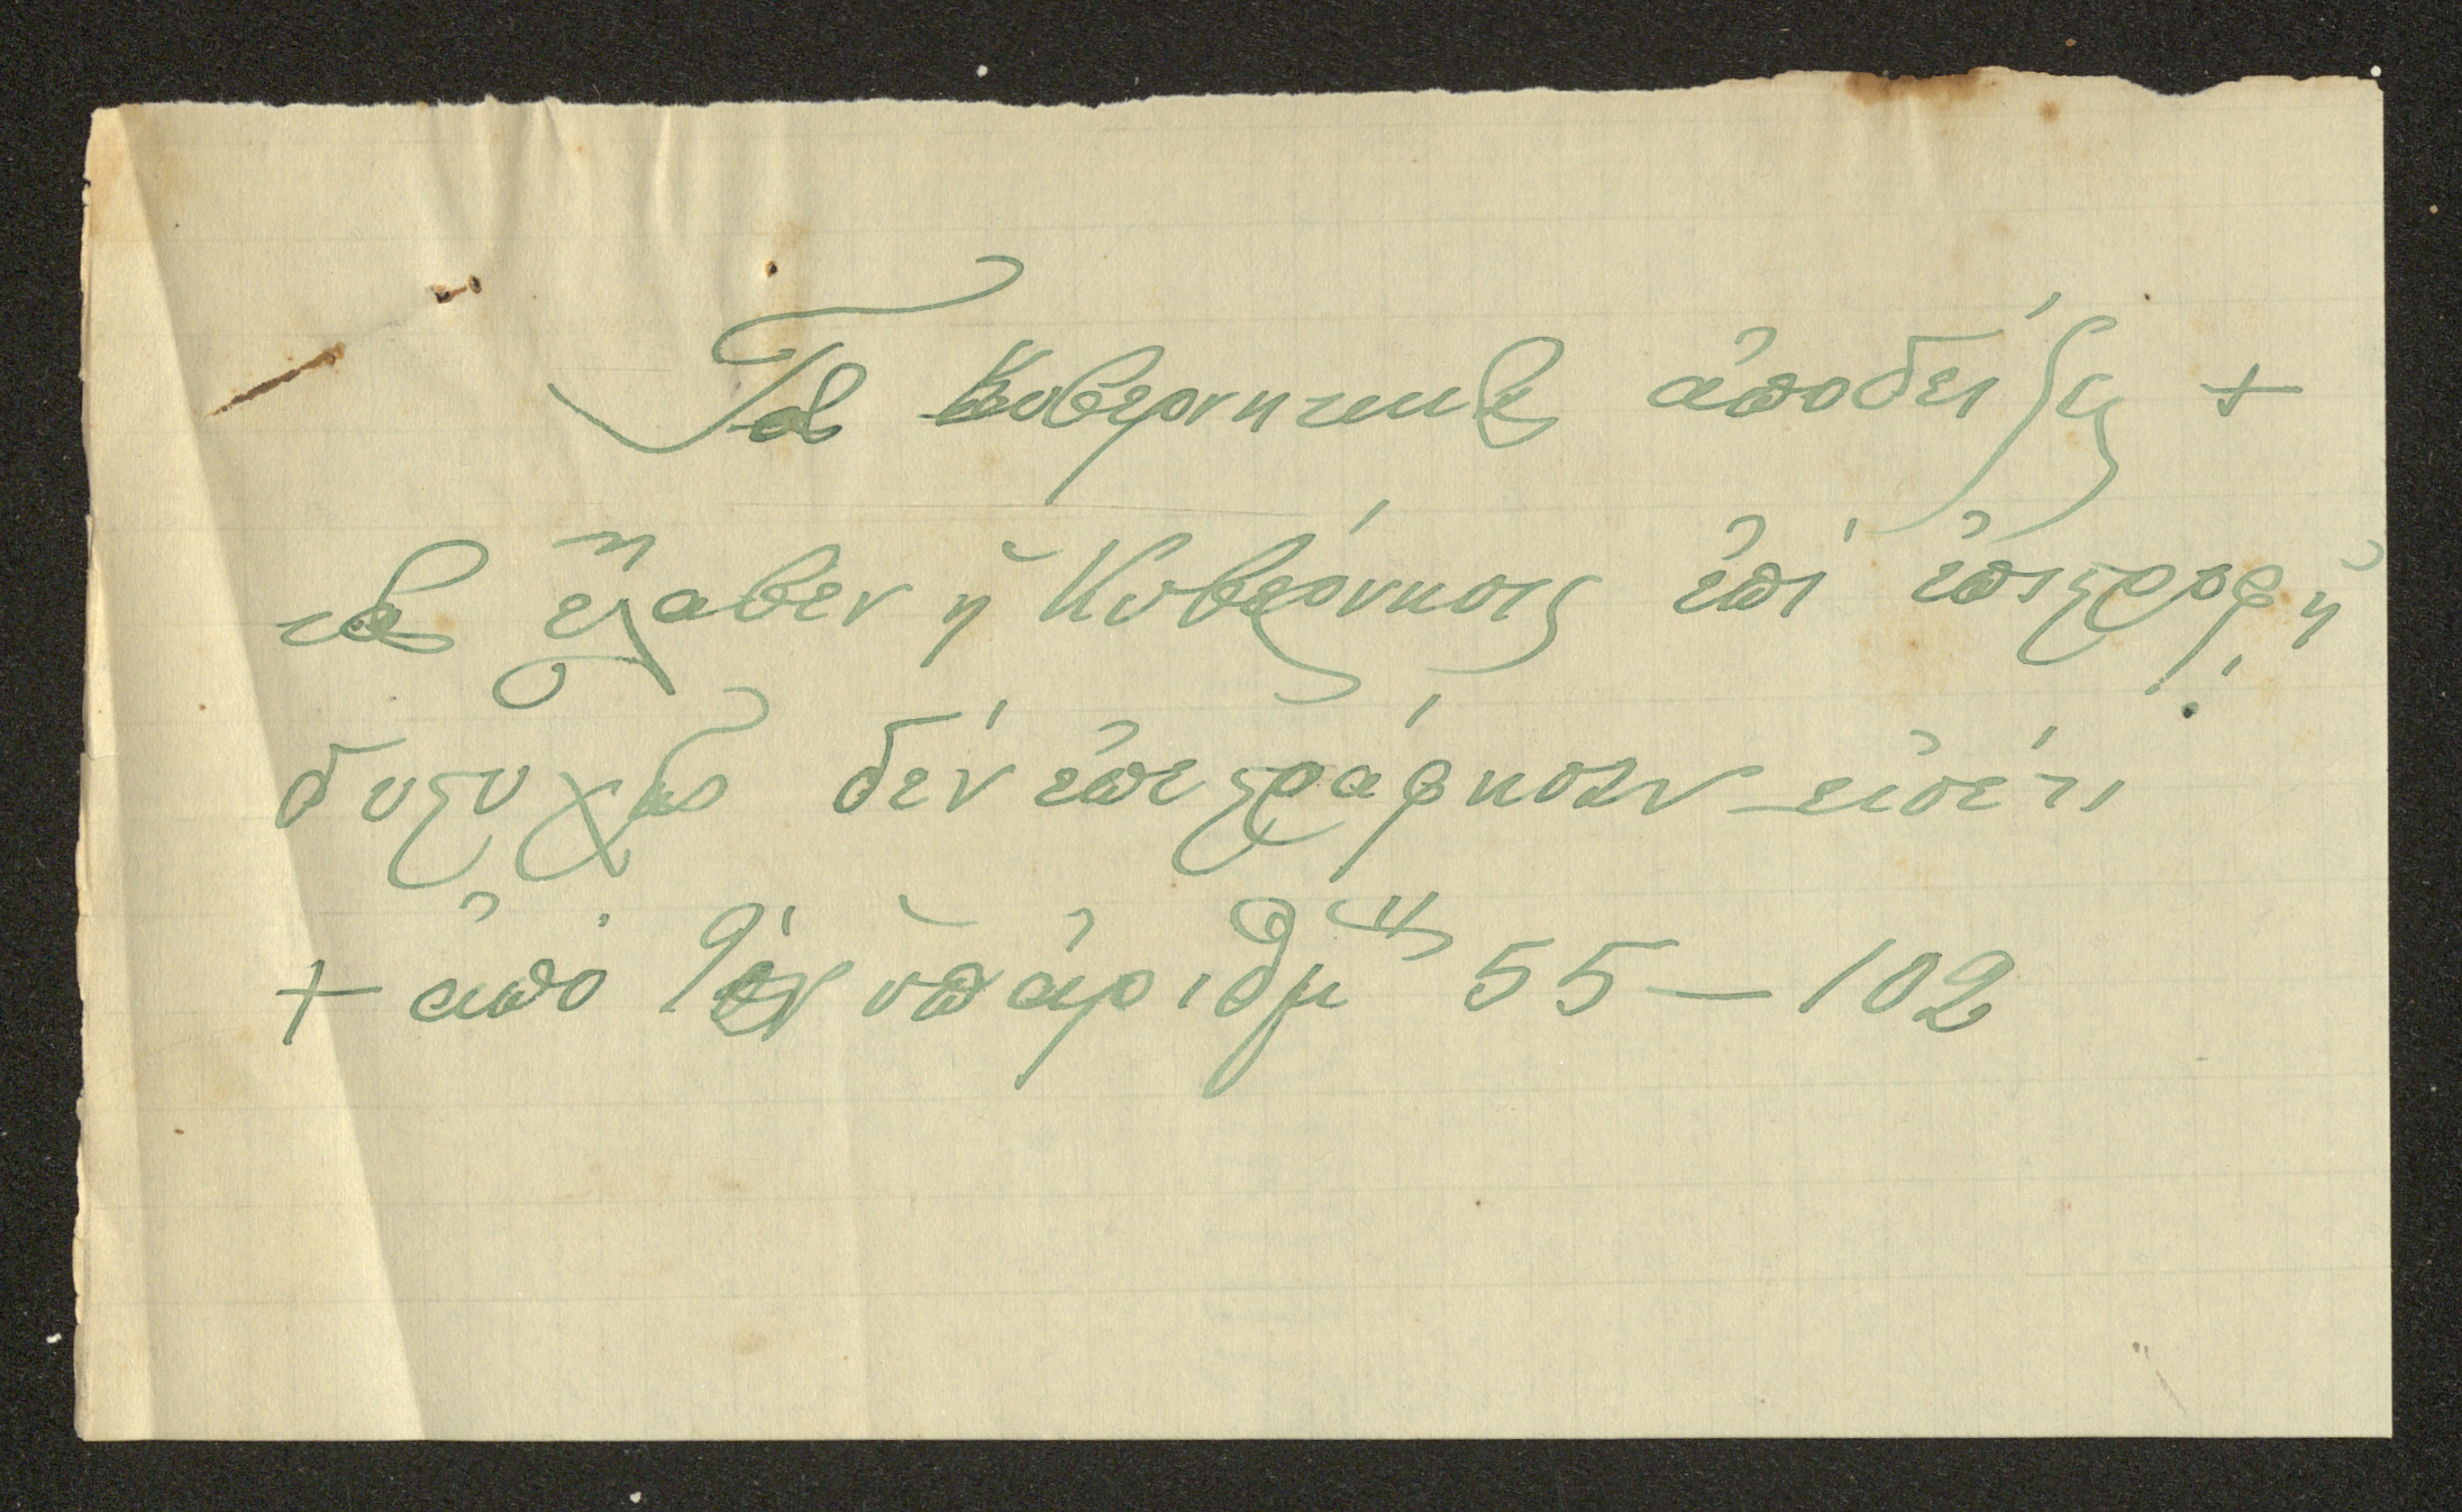 Τὰς Κυβερνητικὰς ἀποδείξεις +
τὰς ἔλαβεν ἡ Κυβέρνησις ἐπὶ ἐπιστροφῇ
δυστυχῶς δὲν ἐπεστράφησαν εἰσέτι
+ ἀπὸ τὸν ὑπ ἀριθμ 55 — 102